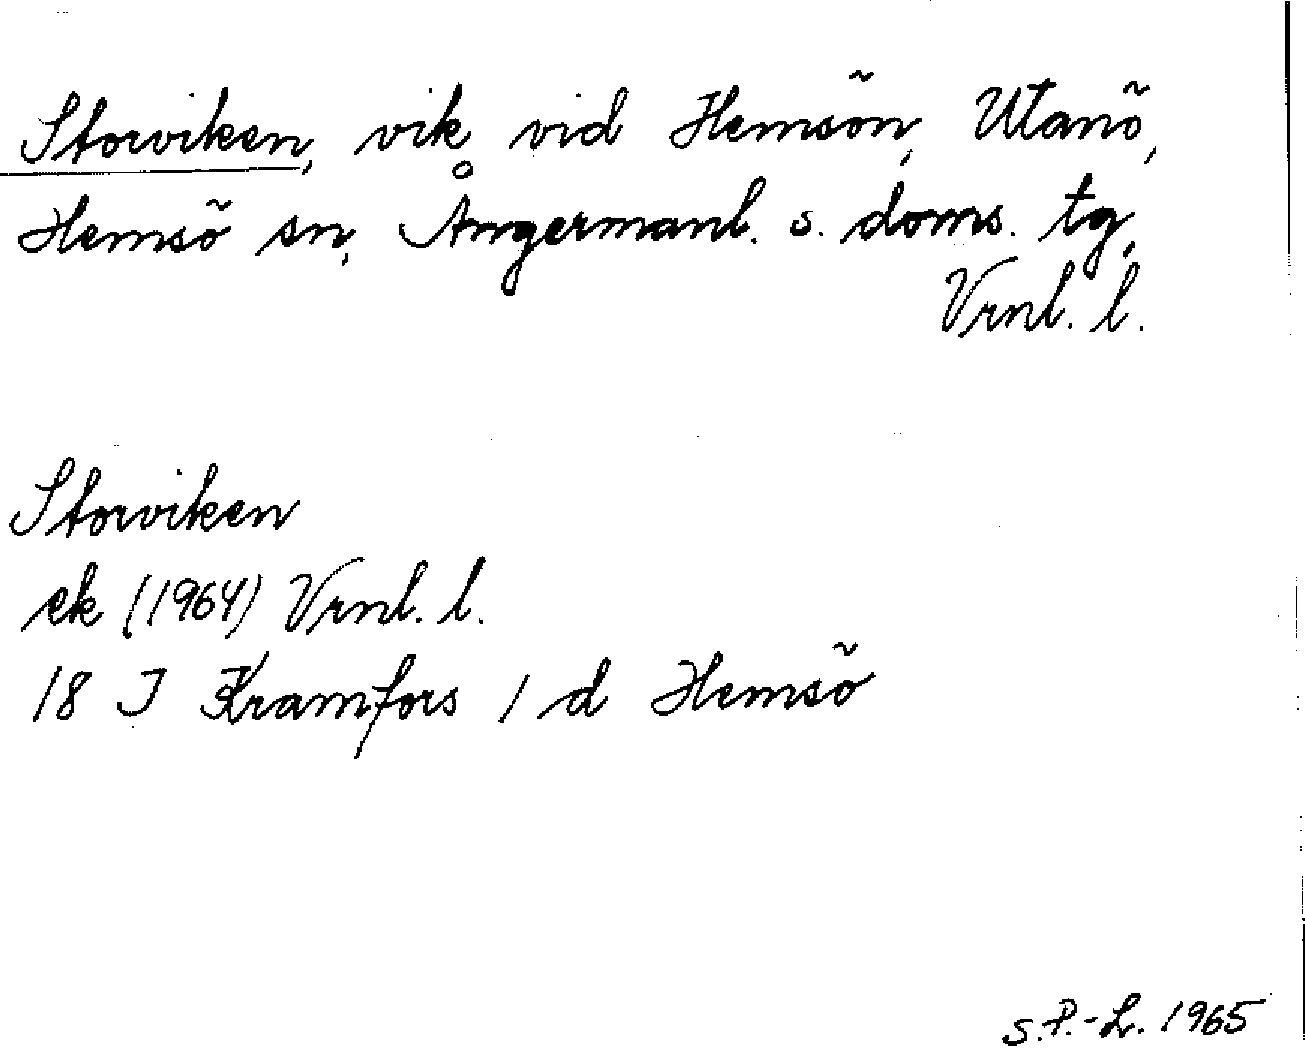 Storviken, vik vid Hemsön, Utanö,
Hemsö sn, Ångermanl. s. doms. tg,
Vrnl. l.
Storviken
ek (1964) Vrnl. l.
18 J Kramfors 1 d Hemsö
S.P.-L. 1965